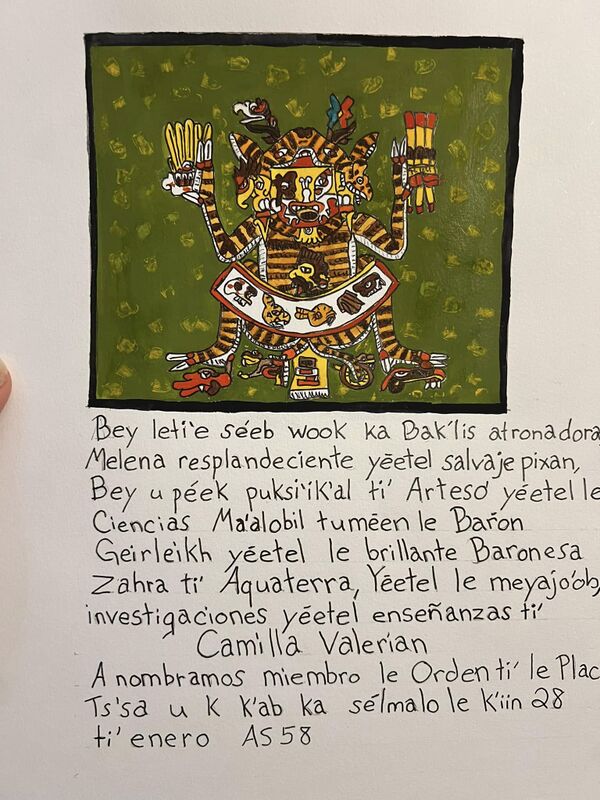 Bey leti'e séeb wook ka Bak'lis atronadora,
Melena resplandeciente yéetel salvaje pixan,
Bey u péek puksi'ik'al ti' Arteso' yéetel le
Ciencias Ma'alobil tuméen le Barón
Geirleikh yéetel le brillante Baronesa
Zahra ti' Aquaterra, Yéetel le meyajo'ob,
investigaciones yéetel enseñanzas ti'
Camilla Valerian
A nombramos miembro le Orden ti' le Plac
Ts'sa u k k'ab ka sélmalo le k'iin 28
ti' enero AS 58